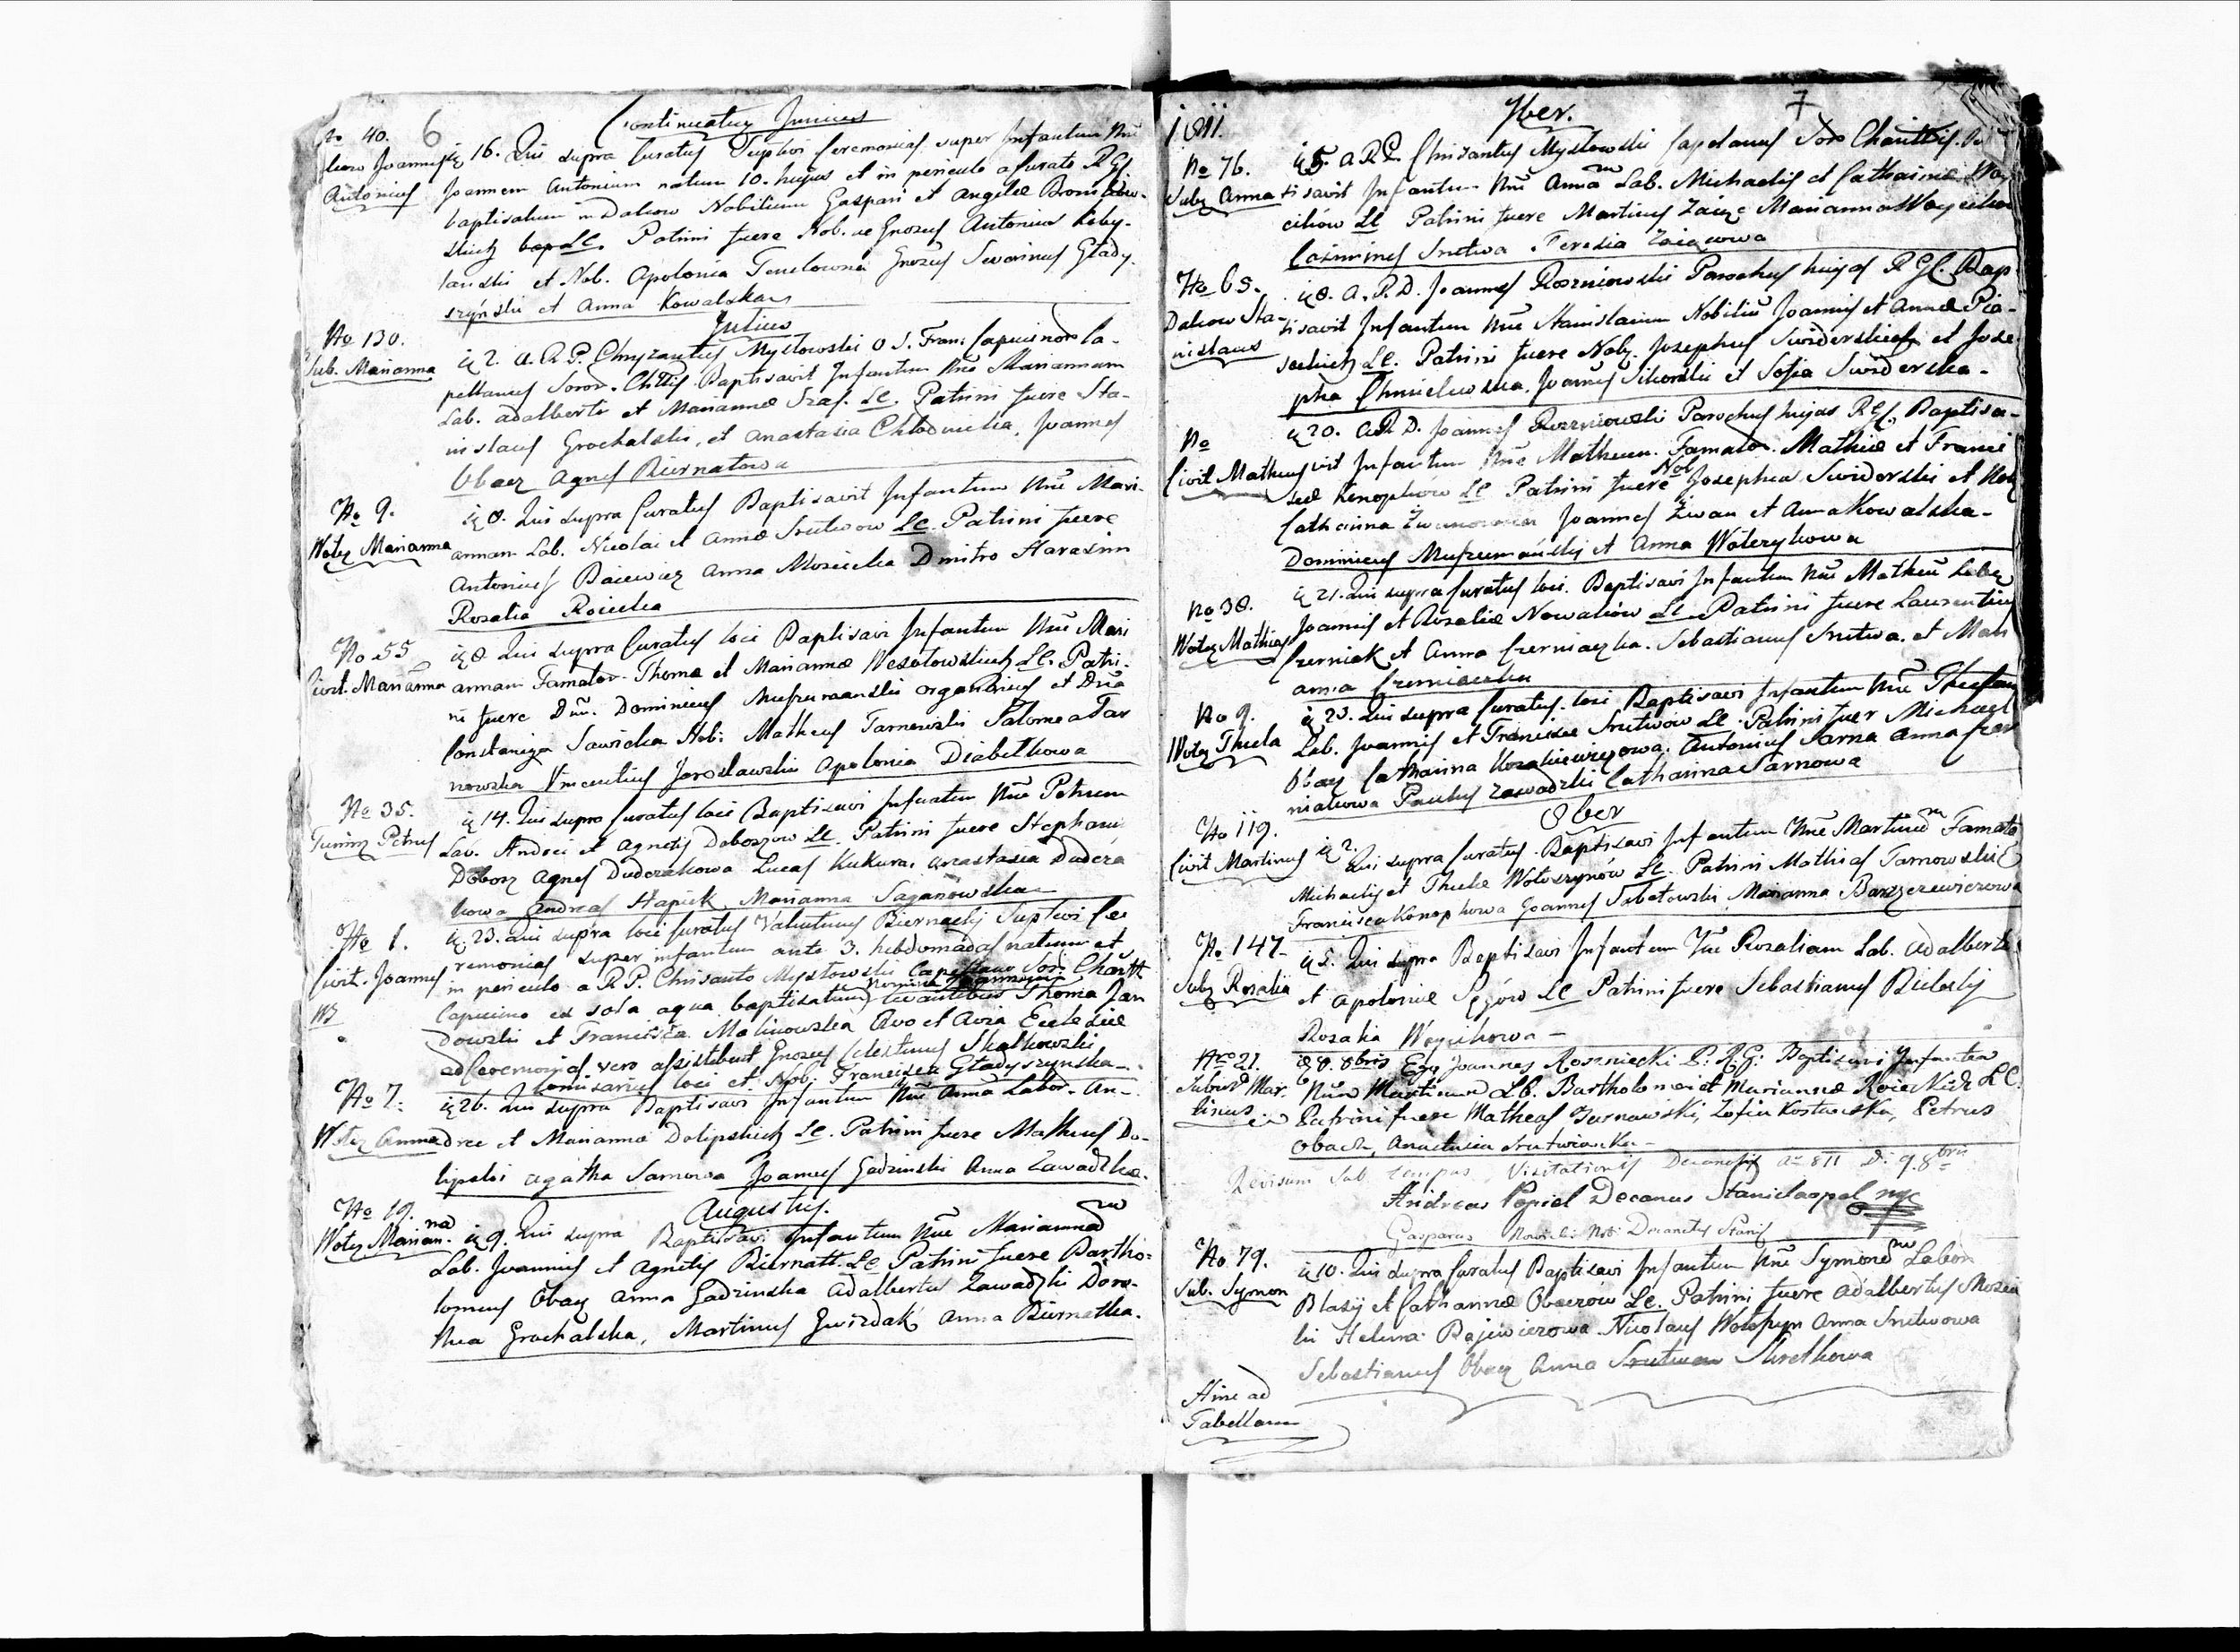 6
Continuatur Junius
No 40.
Antonius
16. Qui supra Curatus Suplevi Ceremonias super Infantem Nne
Joannem Antonium natum 10. hujus et in periculo a Curato R G
baptisatum in Daliow Nobilium Gaspari et Angelae
LC. Patrini fuere Nob. ac Gnosus Antonius
et Nob. Apolonia Gnosus Severinus Glady-
szynski et Anna Kowalska
Julius
No 130.
Sub. Marianna
2. A. R. P. Chryzantus Mystowski O S. Fran: Capucinor Ca-
pellanus Soror. Chttis. Baptisavit Infantem Nne Mariannam
Lab. Adalberti et Mariannae LC. Patrini fuere Sta-
nislaus Grochalski, et Anastasia Chlodnicka, Joannes
Obacz Agnes Biernatowa
No 9.
Wolez Marianna
8. Qui supra Curatus Baptisavit Infantem Nne Mari-
annam Lab. Nicolai et Annae Srutwow LC. Patrini fuere
Antonius Baiewicz Anna Mosiecka Dmitro Harasim
Rosalia Roiecka
No 55
Civit. Marianna
8. Qui supra Curatus loci Baptisavi Infantem Nne Mari
annam Famator. Thomae et Mariannae Wesolowskich LC. Patri-
ni fuere Dnus. Dominicus organarius et Dna
Constancya Sawicka Nob: Matheus Tarnowski Salomea Tar
nowska Vincentius Jaroslawski Apolonia Diabelkowa
No 35.
Petrus
14. Qui supra Curatus loci Baptisavi Infantem Nne Petrum
Lab. Andrei et Agnetis Doboszow LC. Patrini fuere Stephan
Dobosz Agnes Duderakowa Lucas Kukura, Anastasia Dudera
kowa Andreas Stapiek Marianna Saganowska
No 1.
Civit. Joannes
23. Qui supra loci Curatus Valentinus Biernacki Suplevi Ce
remonias super infantem ante 3. hebdomadas natum et
in periculo a R P. Chrisanto Mystowski Capellano Soror Charitt
Capucino ex sola aqua baptisatum nomine Joannem levantibus Thoma Jan
dowski et Francisca Malinowska Avo et Avia Ecclesiae
ad Ceremonias vero assistebant Gnosus Celestinus Skalkowski
Comisarius loci et Nob: Francisca Gladyszynska
No 7.
Wolez Anna
26. Qui supra Baptisavi Infantem Nne Anna Labor. An-
dree et Mariannae Dolipskich LC. Patrini fuere Matheus Do-
lipski Agatha Sarnowa Joannes Gadzinski Anna Zawadzka.
Augustus.
No 19.
Wolez Marianna
9. Qui supra Baptisavi Infantem Nne Mariannam
Lab. Joannis et Agnetis Biernatt. LC Patrini fuere Bartho-
lomeus Obacz Anna Gadzinska Adalbertus Zawadzki Doro-
thea Grochalska, Martinus Gwizdak Anna Biernatka.
1811.
7ber.
7
No 76.
Suby Anna
5. A R P. Chrisantus Mystowski Capelanus Soro Charittis. Bap
tisavit Infantem Nne Annam Lab. Michaelis et Catharinae Woy
cikow LC Patrini fuere Martinus Zaiąc Marianna Woycikow
Casimirus Srutwa. Teresia Zaiącowa
No 65.
Daliow Sta-
nislaus
8. A. R. D. Joannes Rozniowski Parochus hujas R G C. Bap
tisavit Infantem Nne Stanislaum Nobiliu Joannis et Annae Pia-
seckich LC. Patrini fuere Nob. Josephus Swiderski et Jose
pha Chmielewska. Joannes Sikorski et Sofia Swiderska-
No
Civit Matheus
20. A R D. Joannes Rozniowski Parochus hujas R G C. Baptisa-
vit Infantem Nne Matheum. Famator. Mathiae et Franci
scae Konopkow LC Patrini fuere Nob Josephus Swiderski et Nob
Catharina Joannes Zwan et Anna Kowalska-
Dominicus et Anna Wolerykowa
No 38.
Wolez Mathias
21. Qui supra Curatus loci. Baptisavi Infantem Nne Matheu Labor
Joannis et Rosaliae Nowakow LC. Patrini fuere Laurentius
Czerniak et Anna Czerniaczka. Sebastianus Srutwa. et Mari
anna Czerniaczka
No 9.
Wolez Thecla
23. Qui supra Curatus. loci Baptisavi Infantem Nne Theclam
Lab. Joannis et Franciscae Srutwow LC. Patrini fuer Michael
Obacz Catharina Kozakiewiczowa. Antonius Sarna Anna Czer
niakowa Paulus Zawadzki Catharina Sarnowa
8ber
No 119.
Civit Martinus
2. Qui supra Curatus. Baptisavi Infantem Nne Martinum Famato
Michaelis et Theclae Woloszynow LC. Patrini Mathias Tarnowski
Francisca Konopkowa Joannes Sobotowski Marianna Barszczewiczowa
No 147
Suby Rosalia
5. Qui supra Baptisavi Infantem Nne Rosaliam Lab. Adalberti
et Apoloniae LC Patrini fuere Sebastianus Bielasty
Rosalia Woycikowa -
Nro 21.
Mar-
tinus
8. 8bris Ego Joannes Rozniecki P: R. G: Baptisavi Infantem
Nne Martinum LB. Bartholomei et Mariannae Roieckich LC.
Patrini fuere Matheas Tarnawski, Zofia Kostawska, Petrus
Obacz, Anastasia Srutwionka-
Revisum Sub tempus Visitationis Decanalis Ao 811 D. 9. 8bris
Andreas Popiel Decanus Stanislaopol mp
Gasparus Decanatus Stanis
No. 79.
Sub. Symon
10. Qui supra Curatus Baptisavi Infantem Nne Symonem Labor
Blasii et Catharinae Obaczow LC. Patrini fuere Adalbertus Mozia
ki Helena Bajewiczowa Nicolaus Woloszyn Anna Srutwowa
Sebastianus Obacz Anna Skretkowa
Hinc ad
Tabellam